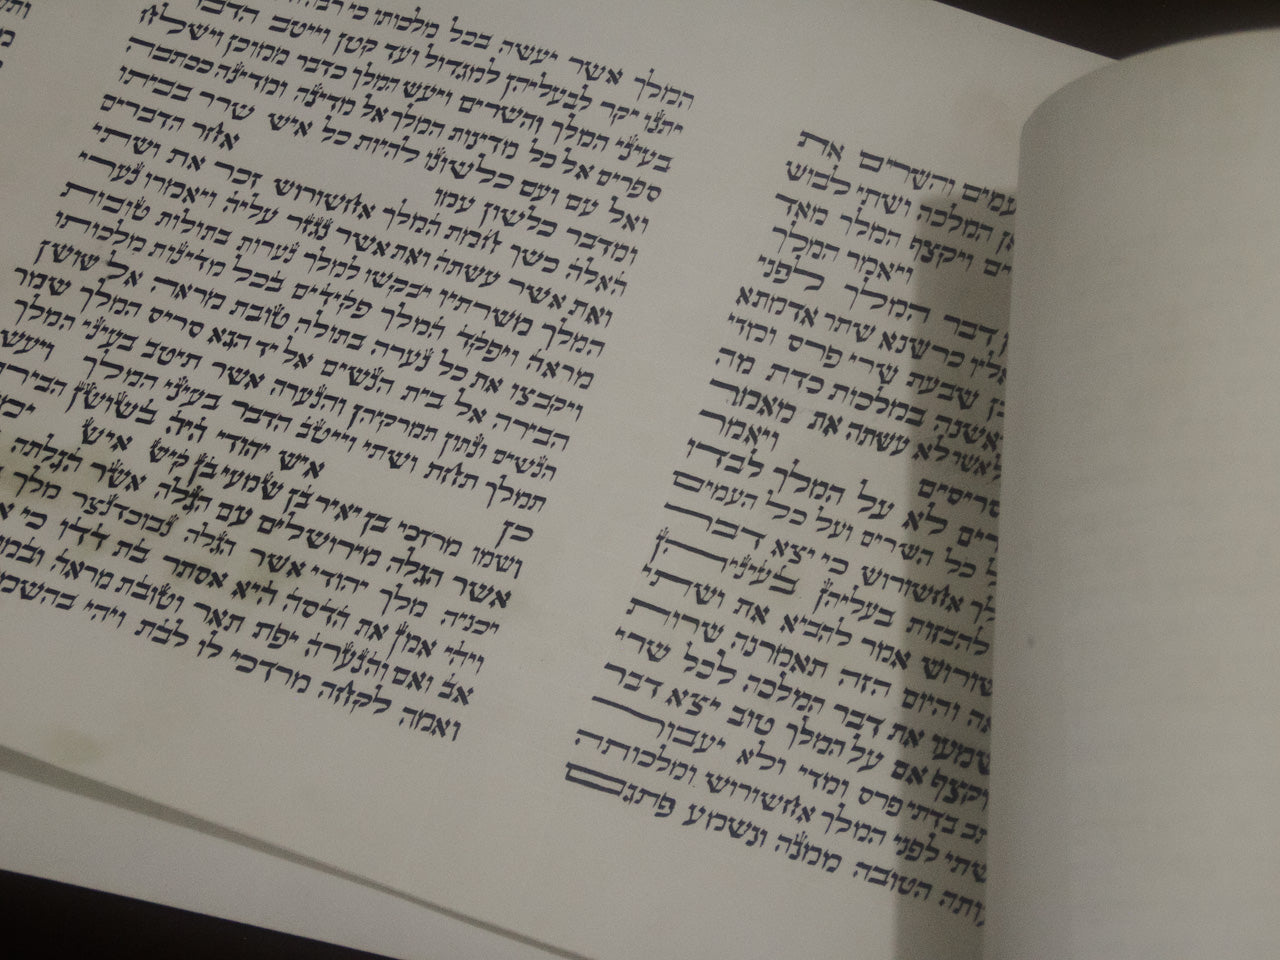 עמים והשרים את
ן המלכה ושתי לבוא
ים ויקצף המלך מאד
ויאמר המלך
ן דבר המלך לפני
אליו כרשנא שתר אדמתא
כן שבעת שרי פרס ומדי
ראשנה במלכות כדת מה
ל אשר לא עשתה את מאמר
סריסים ויאמר
רים לא על המלך לבדו
ל כל השרים ועל כל העמים
לך אחשורוש כי יצא דבר
להבזות בעליהן בעיניהן
שורוש אמר להביא את ושתי
אה והיום הזה תאמרנה שרות
שמעו את דבר המלכה לכל שרי
וקצף אם על המלך טוב יצא דבר
תב בדתי פרס ומדי ולא יעבור
שתי לפני המלך אחשורוש ומלכותה
עותה הטובה ממנה ונשמע פתגם
המלך אשר יעשה בכל מלכותו כי רבה
יתנו יקר לבעליהן למגדול ועד קטן וייטב הדבר
בעיני המלך והשרים ויעש המלך כדבר ממוכן וישלח
ספרים אל כל מדינות המלך אל מדינה ומדינה ככתבה
ואל עם ועם כלשונו להיות כל איש שרר בביתו
ומדבר כלשון עמו אחר הדברים
האלה כשך חמת המלך אחשורוש זכר את ושתי
ואת אשר עשתה ואת אשר נגזר עליה ויאמרו נערי
המלך משרתיו יבקשו למלך נערות בתולות טובות
מראה ויפקד המלך פקידים בכל מדינות מלכותו
ויקבצו את כל נערה בתולה טובת מראה אל שושן
הבירה אל בית הנשים אל יד הגא סריס המלך שמר
הנשים ונתון תמרקיהן והנערה אשר תיטב בעיני המלך
תמלך תחת ושתי וייטב הדבר בעיני המלך ויעש
כן איש יהודי היה בשושן הביר
ושמו מרדכי בן יאיר בן שמעי בן קיש איש ימ
אשר הגלה מירושלים עם הגלה אשר הגלתה
יכניה מלך יהודה אשר הגלה נבוכדנצר מלך
ויהי אמן את הדסה היא אסתר בת דדו כי א
אב ואם והנערה יפת תאר וטובת מראה ובמו
ואמה לקחה מרדכי לו לבת ויהי בהשמ